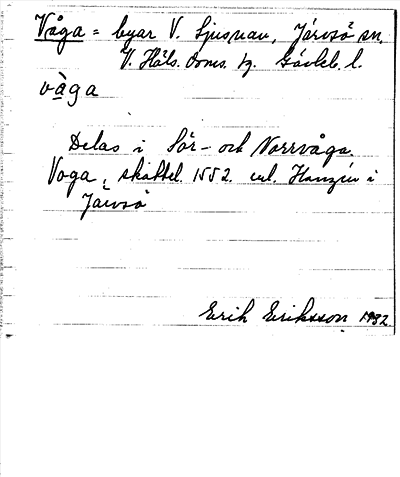 Våga = byar V. Ljusnan, Järvsö sn,
V. Häls. doms. tg. Gävleb. l.
våga
Delas i Sör- och Norrvåga.
Voga, skattel. 1552. enl. Hanzén i
Järvsö
Erik Eriksson 1932